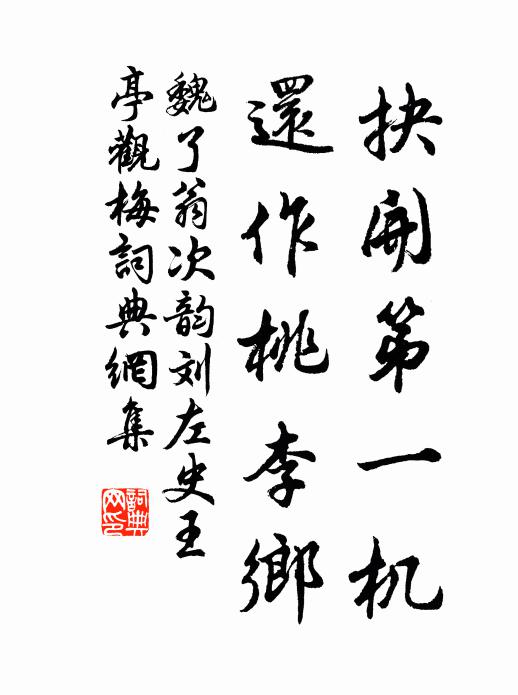 抉開第一机
還作桃李鄉
魏了翁次韵刘左史王
亭觀梅詞典網集
詞典网印